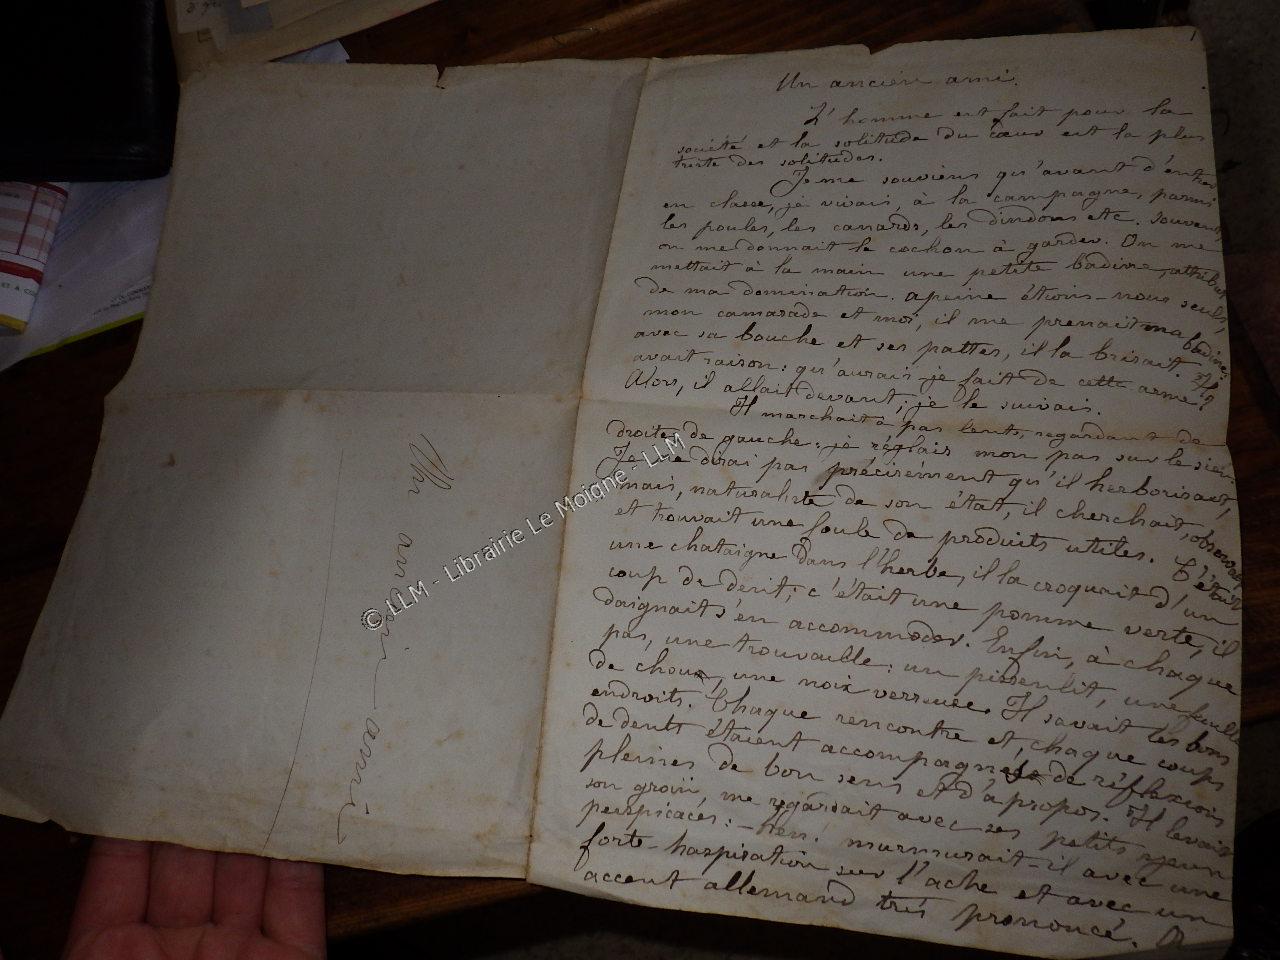 Un ancien ami.
L'homme est fait pour la
société et la solitude du cœur est la plus
triste des solitudes.
Je me souviens qu'avant d'entrer
en classe, je vivais, à la campagne, parmi
les poules, les canards, les dindons etc. Souvent,
on me donnait le cochon à garder. On me
mettait à la main une petite badine, attribut
de ma domination. apeine étions-nous seuls,
mon camarade et moi, il me prenait ma badine
avec sa bouche et ses pattes, il la brisait. Il
avait raison: qu'aurais-je fait de cette arme?
Alors, il allait devant; je le suivais.
Il marchait à pas lents, regardant de
droite, de gauche; je réglais mon pas sur le sien.
Je ne dirai pas précisément qu'il herborisait,
mais, naturaliste de son état, il cherchait, observait
et trouvait une foule de produits utiles. C'était
une chataigne dans l'herbe, il la croquait d'un
coup de dent; c'était une pomme verte, il
daignait s'en accommoder. Enfin, à chaque
pas, une trouvaille: un pissenlit, une feuille
de choux, une noix verreuse. Il savait les bons
endroits. Chaque rencontre et, chaque coups
de dents étaient accompagnés de réflexions
pleines de bon sens et d'à propos. Il levait
son groin, me regardait avec ses petits yeux
perspicaces: - murmurait-il avec une
forte-haspiration sur l'ache et avec un
accent allemand très prononcé.
Un ancien ami
© LLM - Librairie Le Moigne - LLM